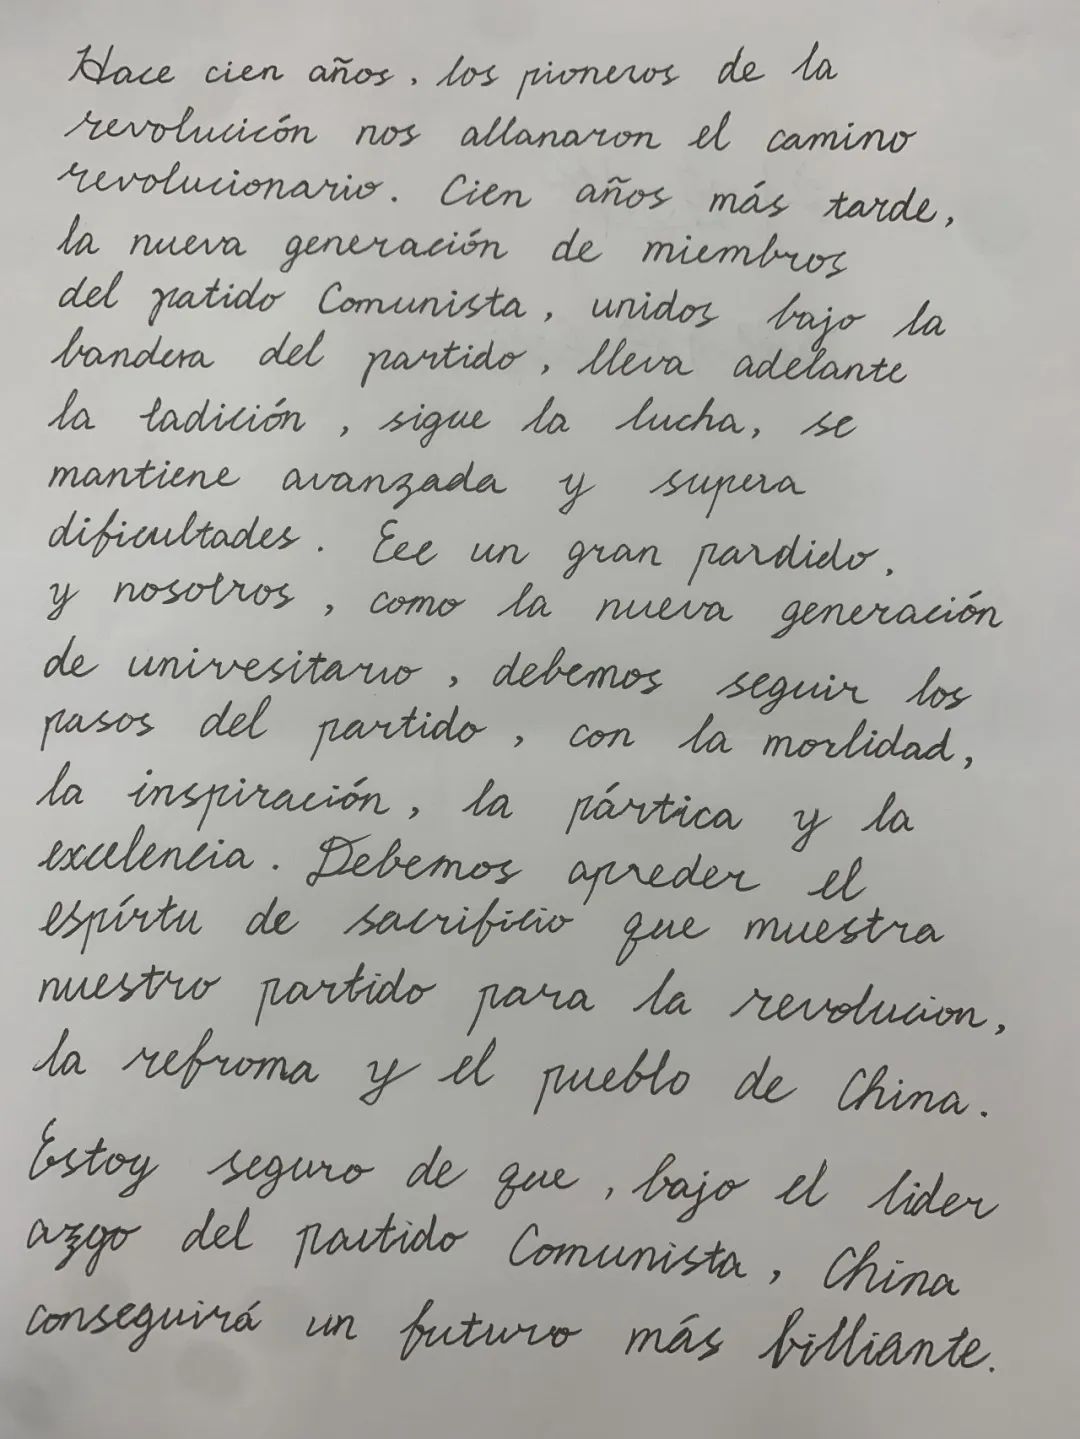 Hace cien años, los pioneros de la
revolucicón nos allanaron el camino
revolucionario. Cien años más tarde,
la nueva generación de miembros
del patido Comunista, unidos bajo la
bandera del partido, lleva adelante
la tadición, sigue la lucha, se
mantiene avanzada y supera
dificultades. Ece un gran pardido,
y nosotros, como la nueva generación
de univesitario, debemos seguir los
pasos del partido, con la morlidad,
la inspiración, la pártica y la
excelencia. Debemos apreder el
espírtu de sacrificio que muestra
nuestro partido para la revolucion,
la refroma y el pueblo de China.
Estoy seguro de que, bajo el lider
azgo del partido Comunista, China
conseguirá un futuro más billiante.